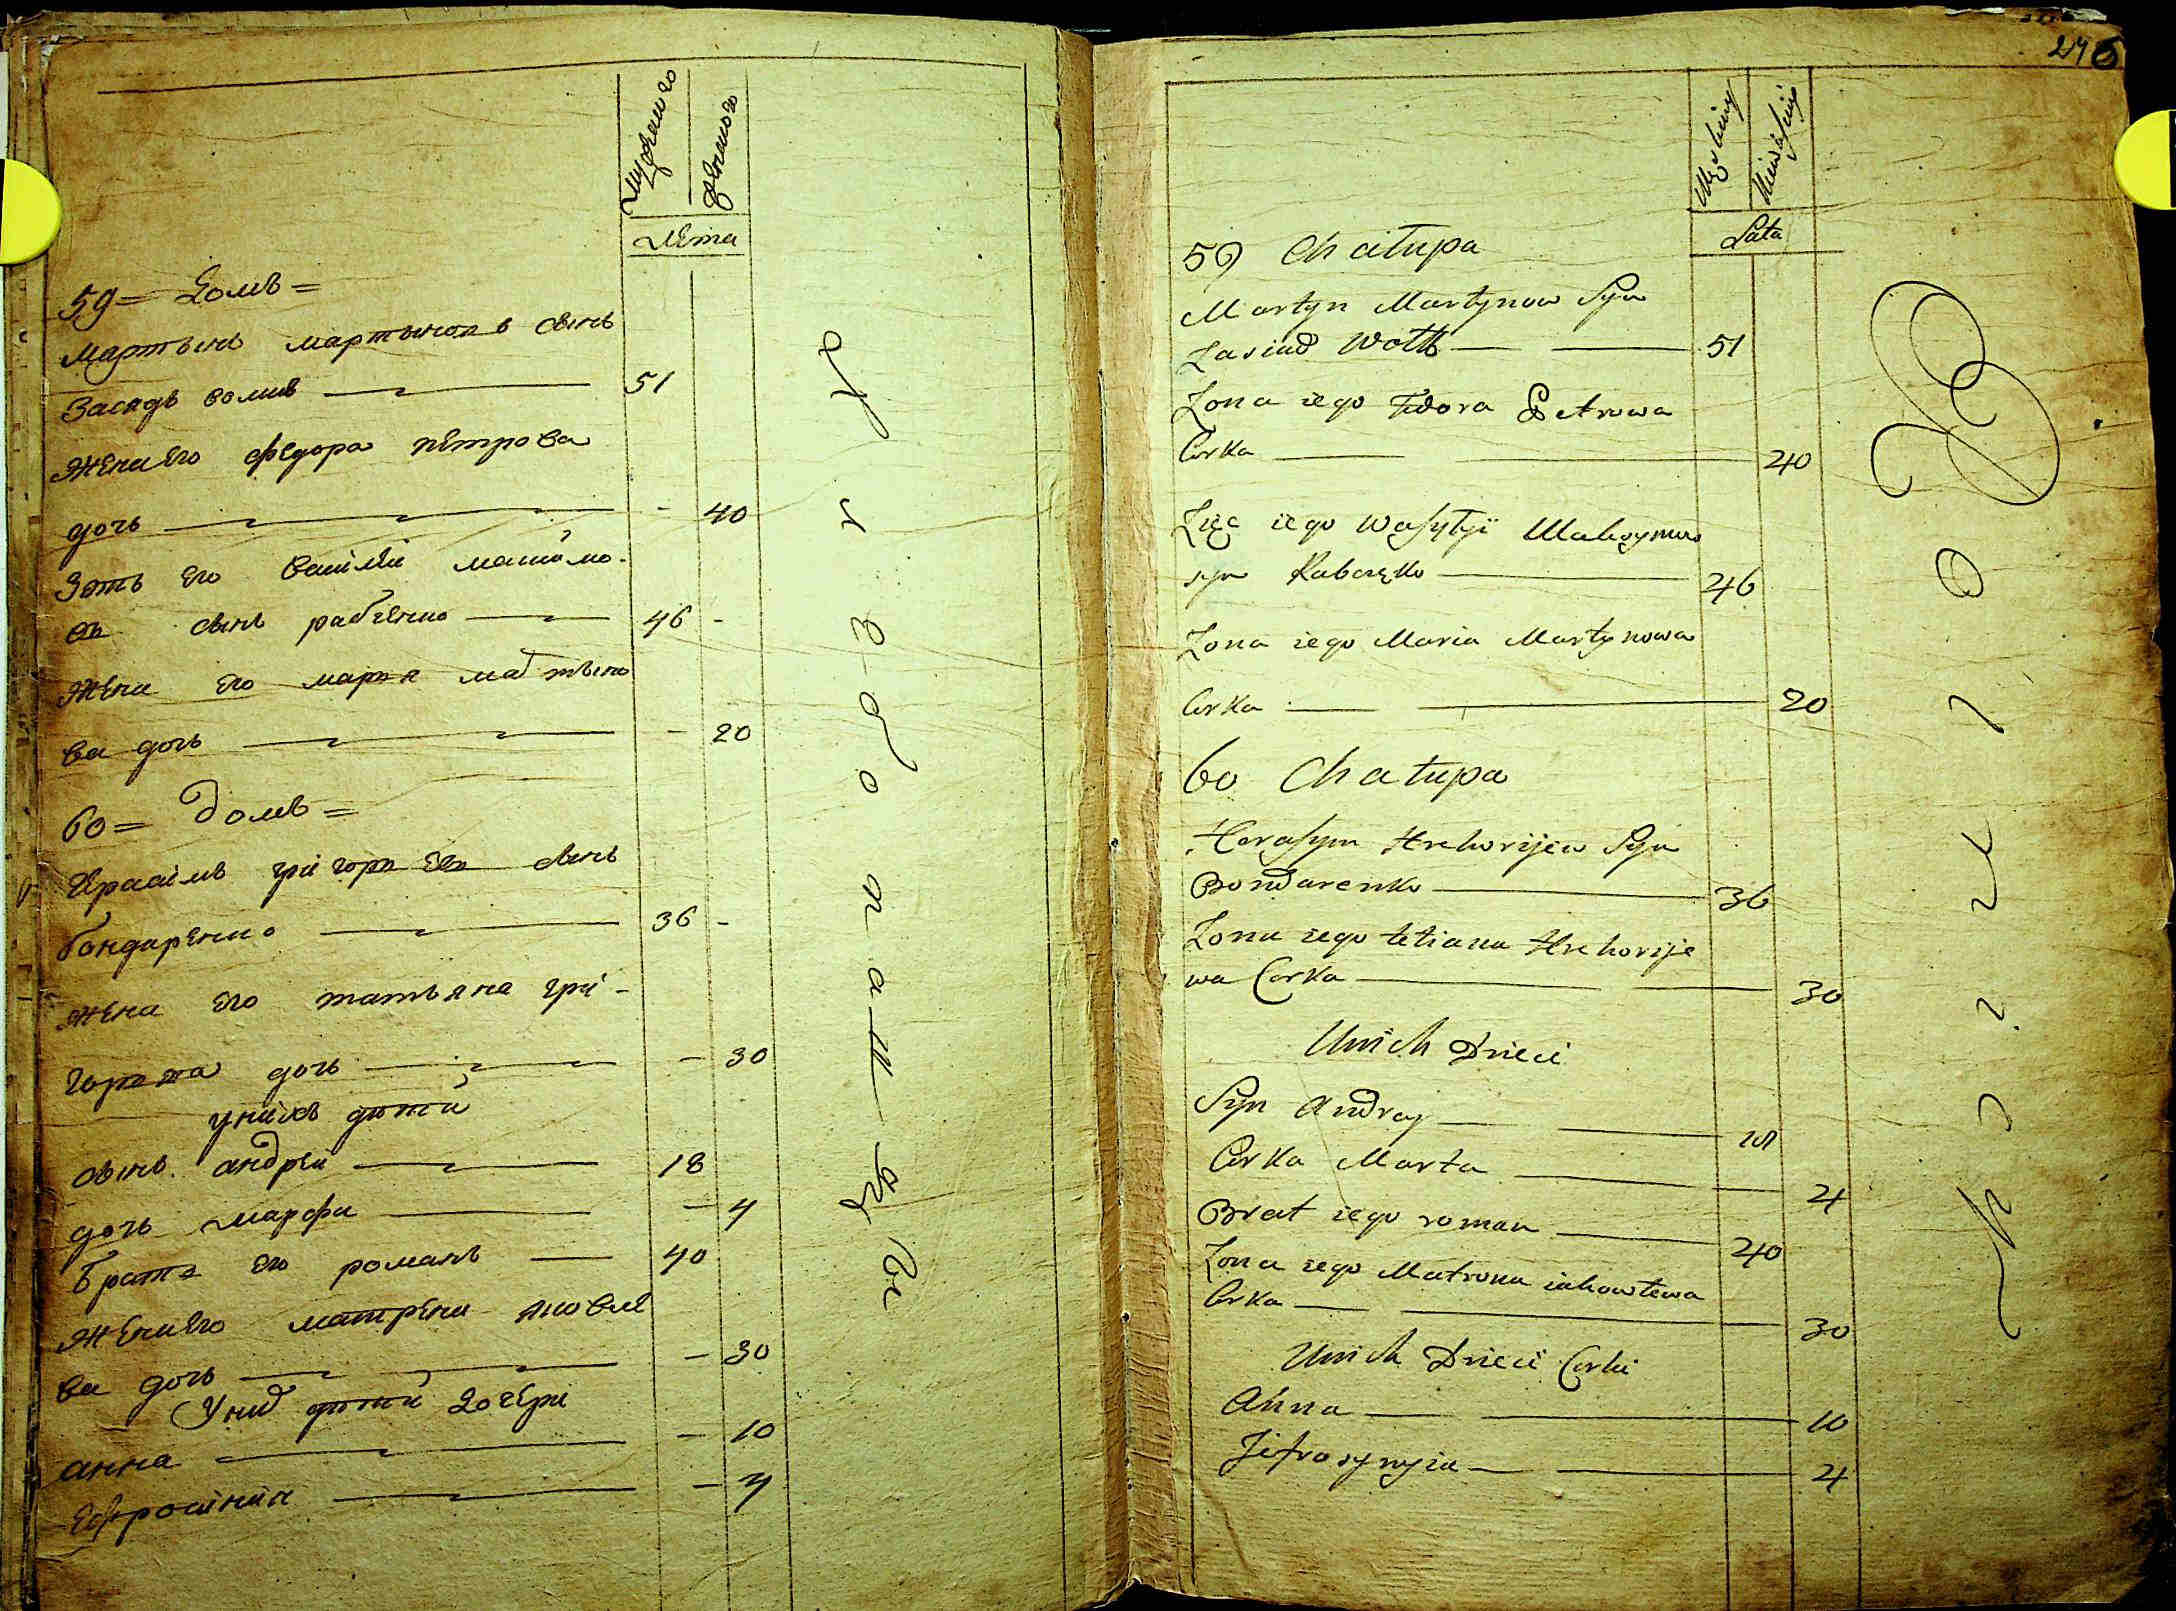 мужеска
женска
лета
59= домъ=
мартынъ мартыновъ сынъ
засядъ волик ——— 51
жена его федора петрова
дочь ——— - 40
зять его василій максімо-
въ сынъ рабченко ——— 46 -
жена его марья мартыно
ва дочь ——— - 20
60= домъ=
Ерасімъ грігорьевъ сынъ
бондаренко ——— 36 -
жена его татьяна грі-
горьева дочь ——— - 30
у ніхъ дѣтей
сынъ андрей ——— 18
дочь марфа ——— - 4
братъ его романъ ——— 40
жена его матрена яковле
ва дочь ——— - 30
У них дѣтей дочері
анна ——— - 10
Ефросінія ——— - 4
246
Męskiey
Niewieściey
Lata
59 Chałupa
Martyn Martynow Syn
Zasiad Wołk ——— 51
Zona iego Fedora Petrowa
Corka ——— 40
Zięć iego Wasylyi Maksymow
syn Rabczęko ——— 26
Zona iego Maria Martynowa
Corka ——— 20
60 Chałupa
Herasym Hrehorijew Syn
Bondarenko ——— 36
Zona iego tetiana Hrehorije
wa Corka ——— 30
Unich Dzieci
Syn Andrey ——— 18
Corka Marta ——— 4
Brat iego roman ——— 40
Zona iego Matrona iakowlewa
Corka ——— 30
Unich Dzieci Corki
Anna ——— 10
Jefrosynyia ——— 4